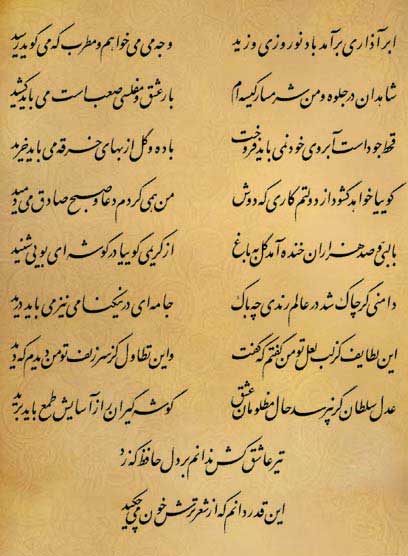 ابر آذاری برآمد باد نوروزی وزید وجه می می‌خواهم و مطرب که می‌گوید رسید
شاهدان در جلوه و من شرمسار کیسه‌ام بار عشق و مفلسی صعب است می‌باید کشید
قحط جود است آبروی خود نمی‌باید فروخت باده و گل از بهای خرقه می‌باید خرید
گوییا خواهد گشود از دولتم کاری که دوش من همی‌کردم دعا و صبح صادق می‌دمید
با لبی و صد هزاران خنده آمد گل به باغ از کریمی گوییا در گوشه‌ای بویی شنید
دامنی گر چاک شد در عالم رندی چه باک جامه‌ای در نیکنامی نیز می‌باید درید
این لطایف کز لب لعل تو من گفتم که گفت وین تطاول کز سر زلف تو من دیدم که دید
عدل سلطان گر نپرسد حال مظلومان عشق گوشه‌گیران را ز آسایش طمع باید برید
تیر عاشق‌کش ندانم بر دل حافظ که زد
این قدر دانم که از شعر ترش خون می‌چکید